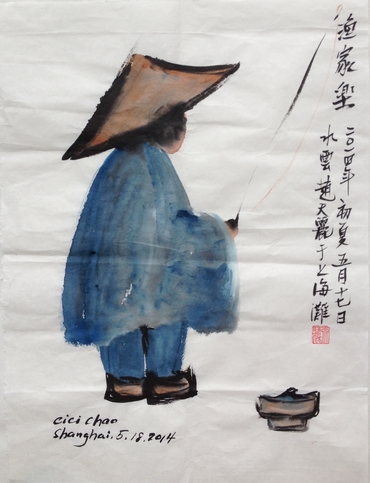 漁家樂
二〇一四年初夏五月十七日
水雲趙天麗于上海灘
cici chao
shanghai.5.18.2014